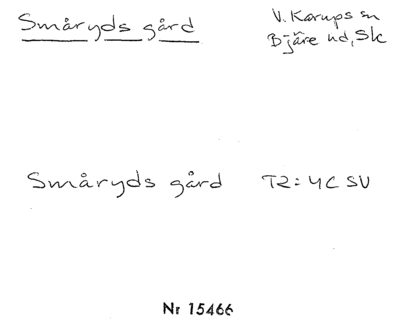 Småryds gård
V. Karups sn
Bjäre hd, Sk
Småryds gård T2: 4C SV
Nr 15466